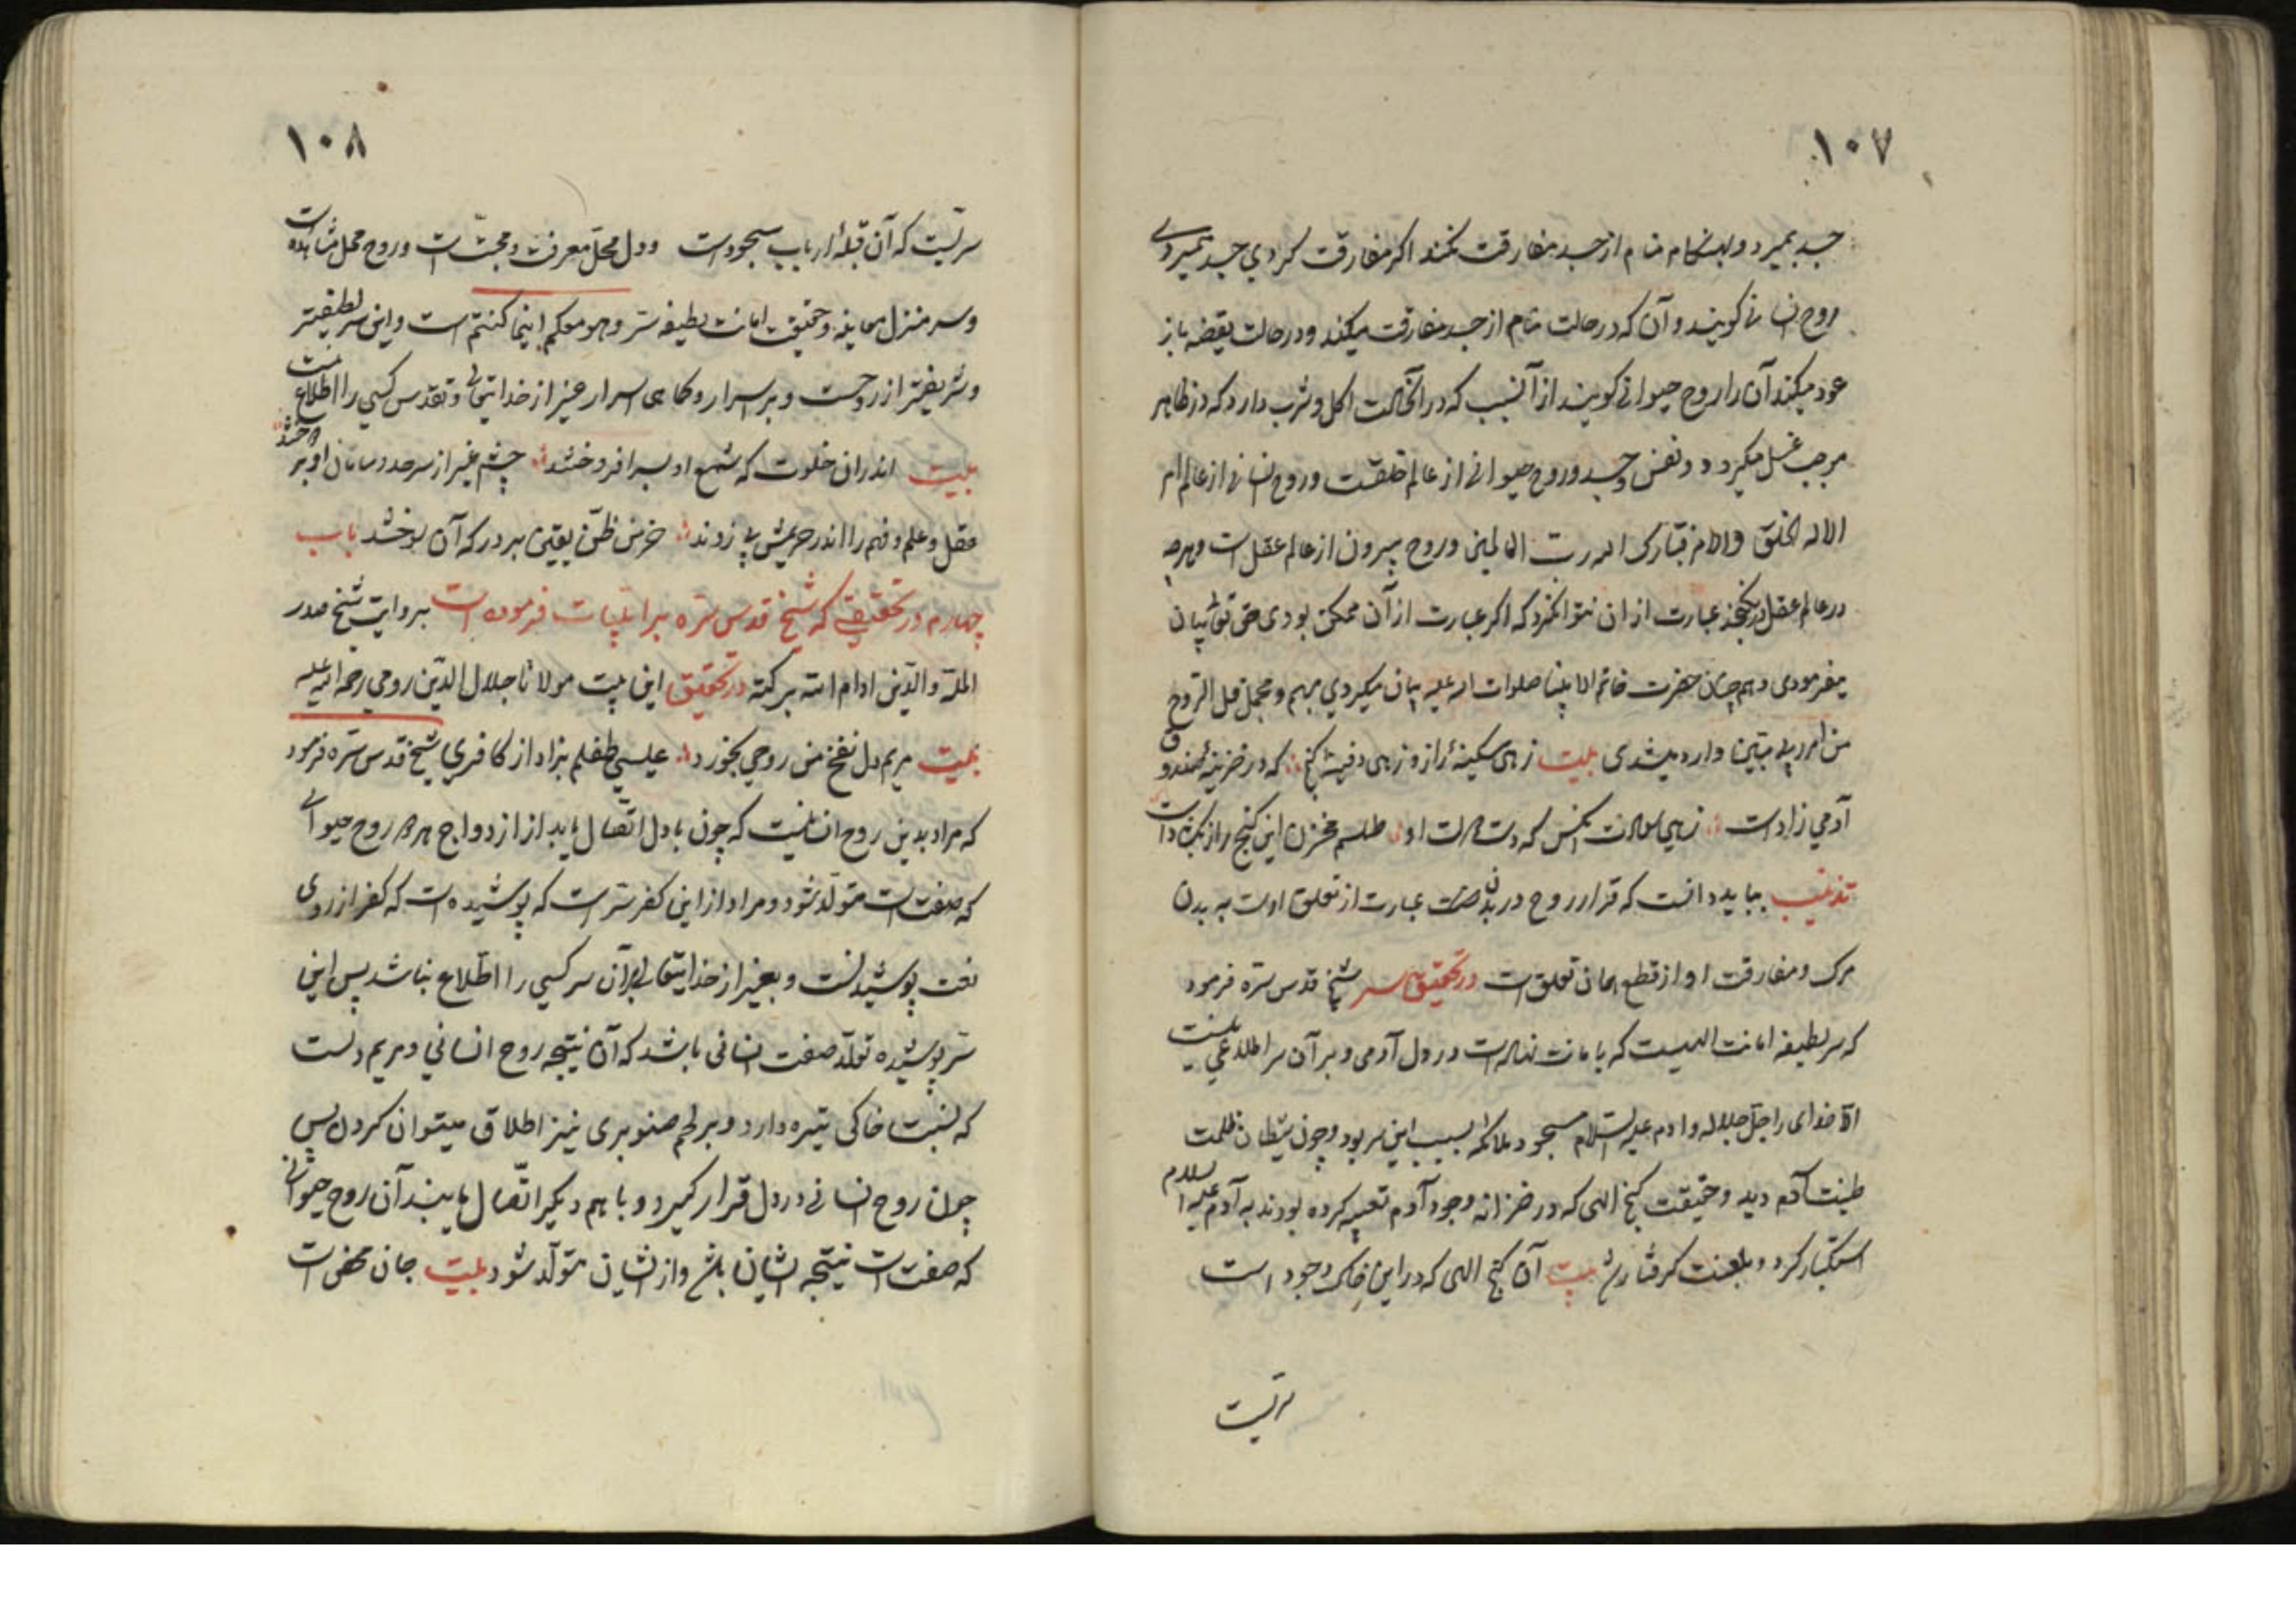 ١٠٧
جسد بمیرد و بهنکام منام از جسد مفارقت نکند اکر مفارقت کردي جسد بمیردي
روح انسانی کویند و آن که در حالت منام از جسد مفارقت میکند و در حالت یقضه باز
عود میکند آن را روح حیوانی کویند از آنسبب که در آنحالت اکل و شرب دارد که در ظاهر
موجب غسل میکردد و نفس و جسد و روح حیوانی از عالم خلقست و روح انسانی از عالم امر
الا له الخلق والامر تبارک الله رب العالمین و روح بیرون از عالم عقل است و هرچه
در عالم عقل در نکنجد عبارت از ان نتوانکرد که اکر عبارت از آن ممکن بودی حق تعالی بیان
میفرمودی و هم چنان حضرت خاتم الانبیا صلوات الله علیه بیان میکردي مبهم و مجمل قل الروح
من امر ربی وارد میشدی بیت زهی سکینهٔ راز و زهی دفینهٔ کنج که در خزینهٔ صندوق
آدمي زادست زهی آنکس که دست او طلسم مخزن این کنج راز
تذنیب بباید دانست که قرار روح در بدن عبارت از تعلق اوست به بدن
مرک و مفارقت او از قطع همان تعلق است در تحقیق سر شیخ قدس سره فرمود
که سر لطیفه امانت الهیست که بامانت نهاده است در دل آدمی و بر آن سر اطلاعی نیست
الا خدای را جل جلاله و ادم علیه السلام مسجود ملائکه بسبب این سر بود و چون شیطان ظلمت
طینت آدم دید و حقیقت کنج الهی که در خزانه وجود آدم تعبیه کرده بودند به آدم علیه السلام
استکبار کرد و بلعنت کرفتار شد بیت آن کنج الهی که در این خاک وجود است
سریست
١٠٨
سریست که آن قبلهٔ ارباب سجودست و دل محل معرفت و محبت است و روح محل مشاهده است
و سر منزل معاینه و حقیقت امانت لطیفه سر و هو معکم اینما کنتم است و این سر لطیفتر
و شریفتر از روحست و بر اسرار و کماهی اسرار غیر از خدا تعالی و تقدس کسي را اطلاع نیست
بیت اندران خلوت که شمع او بسر افروختند چشم غیر از سرحد و سامان او بر دوختند
عقل و علم و فهم را اندر حریمش پی زدند خرمن ظن و یقین بر در که آن سوختند باب
چهارم در تحقیقی که شیخ قدس سره بر ابیات فرموده است بروایت شیخ صدر
الملة والدین ادام الله برکته در تحقیق این بیت مولانا جلال الدین رومي رحمة الله علیه
بیت مریم دل نفخ من روحي بخورد عیسي طفلم بزاد از کافري شیخ قدس سره فرمود
که مراد بدین روح انسانیست که چون با دل اتصال یابد از ازدواج هر دو روح حیوانی
که صفتست متولد شود و مراد از این کفر سر است که پوشیده است که کفر از روی
لغت پوشیدنست و بغیر از خدایتعالی بر آن سر کسي را اطلاع نباشد پس این
سر پوشیده تولد صفت انسانی باشد که آن نتیجه روح انساني و مریم دلست
که نسبت خاکی تیره دارد و بر لحم صنوبری نیز اطلاق میتوان کردن پس
چون روح انسانی در دل قرار کیرد و با هم دیکر اتصال یابند آن روح حیوانی
که صفتست نتیجه ایشان باشد و از ایشان متولد شود بیت جان مخفی است